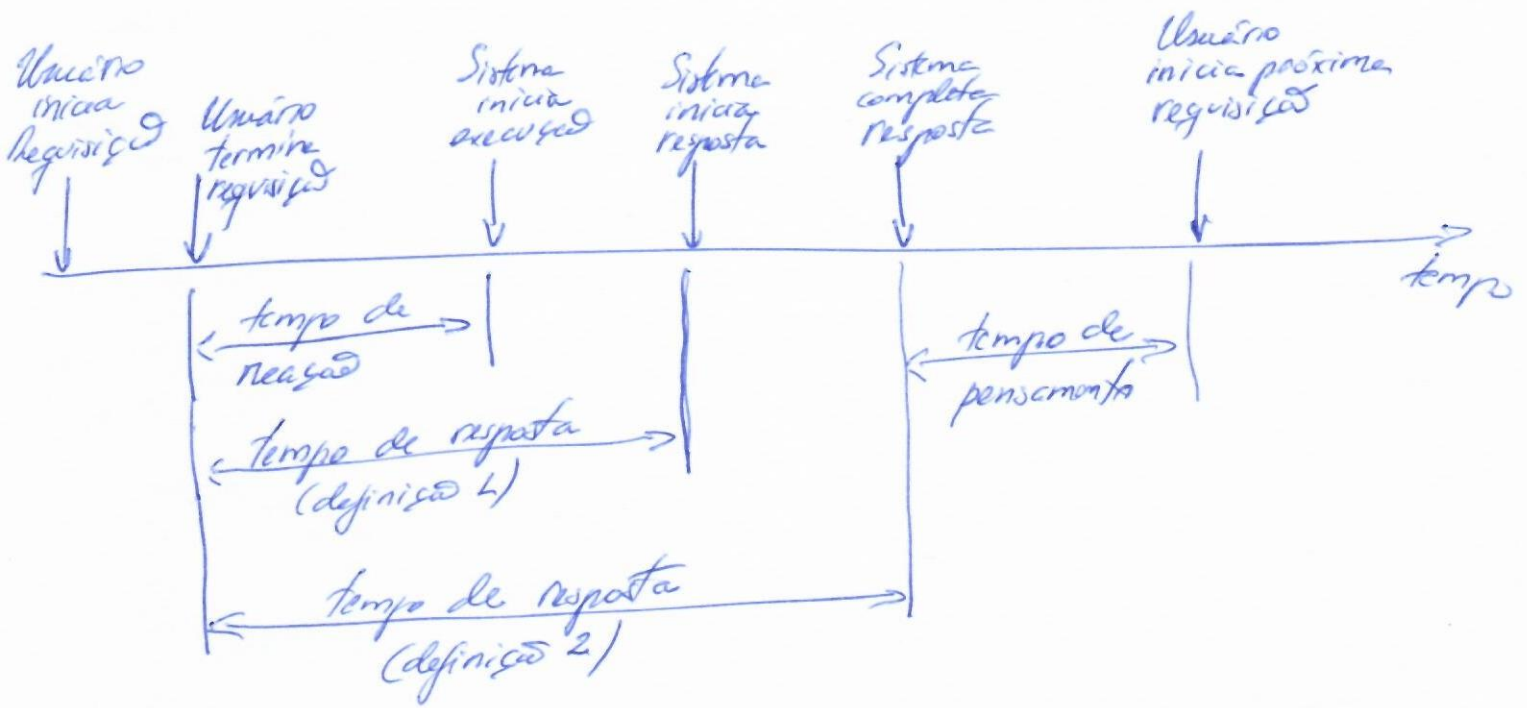 Usuário
inicia
Requisição
Usuário
termina
requisição
Sistema
inicia
execução
Sistema
inicia
resposta
Sistema
completa
resposta
Usuário
inicia próxima
requisição
tempo
tempo de
reação
tempo de
pensamento
tempo de resposta
(definição 1)
tempo de resposta
(definição 2)